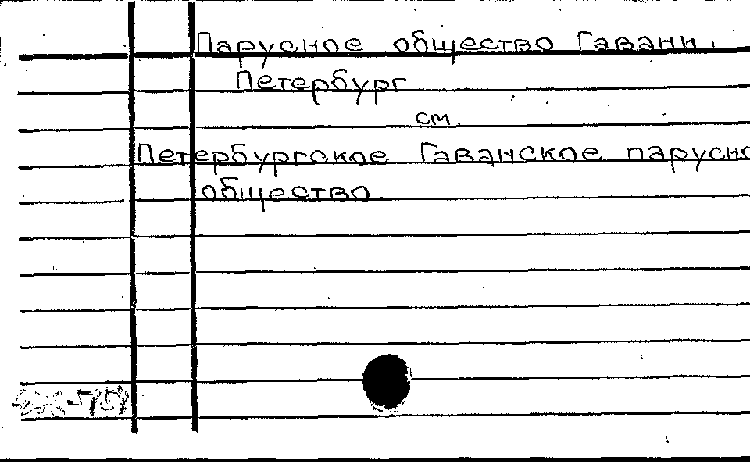 Парусное общество Гавани.
Петербург
см.
Петербургское Гаванское парусно
общество